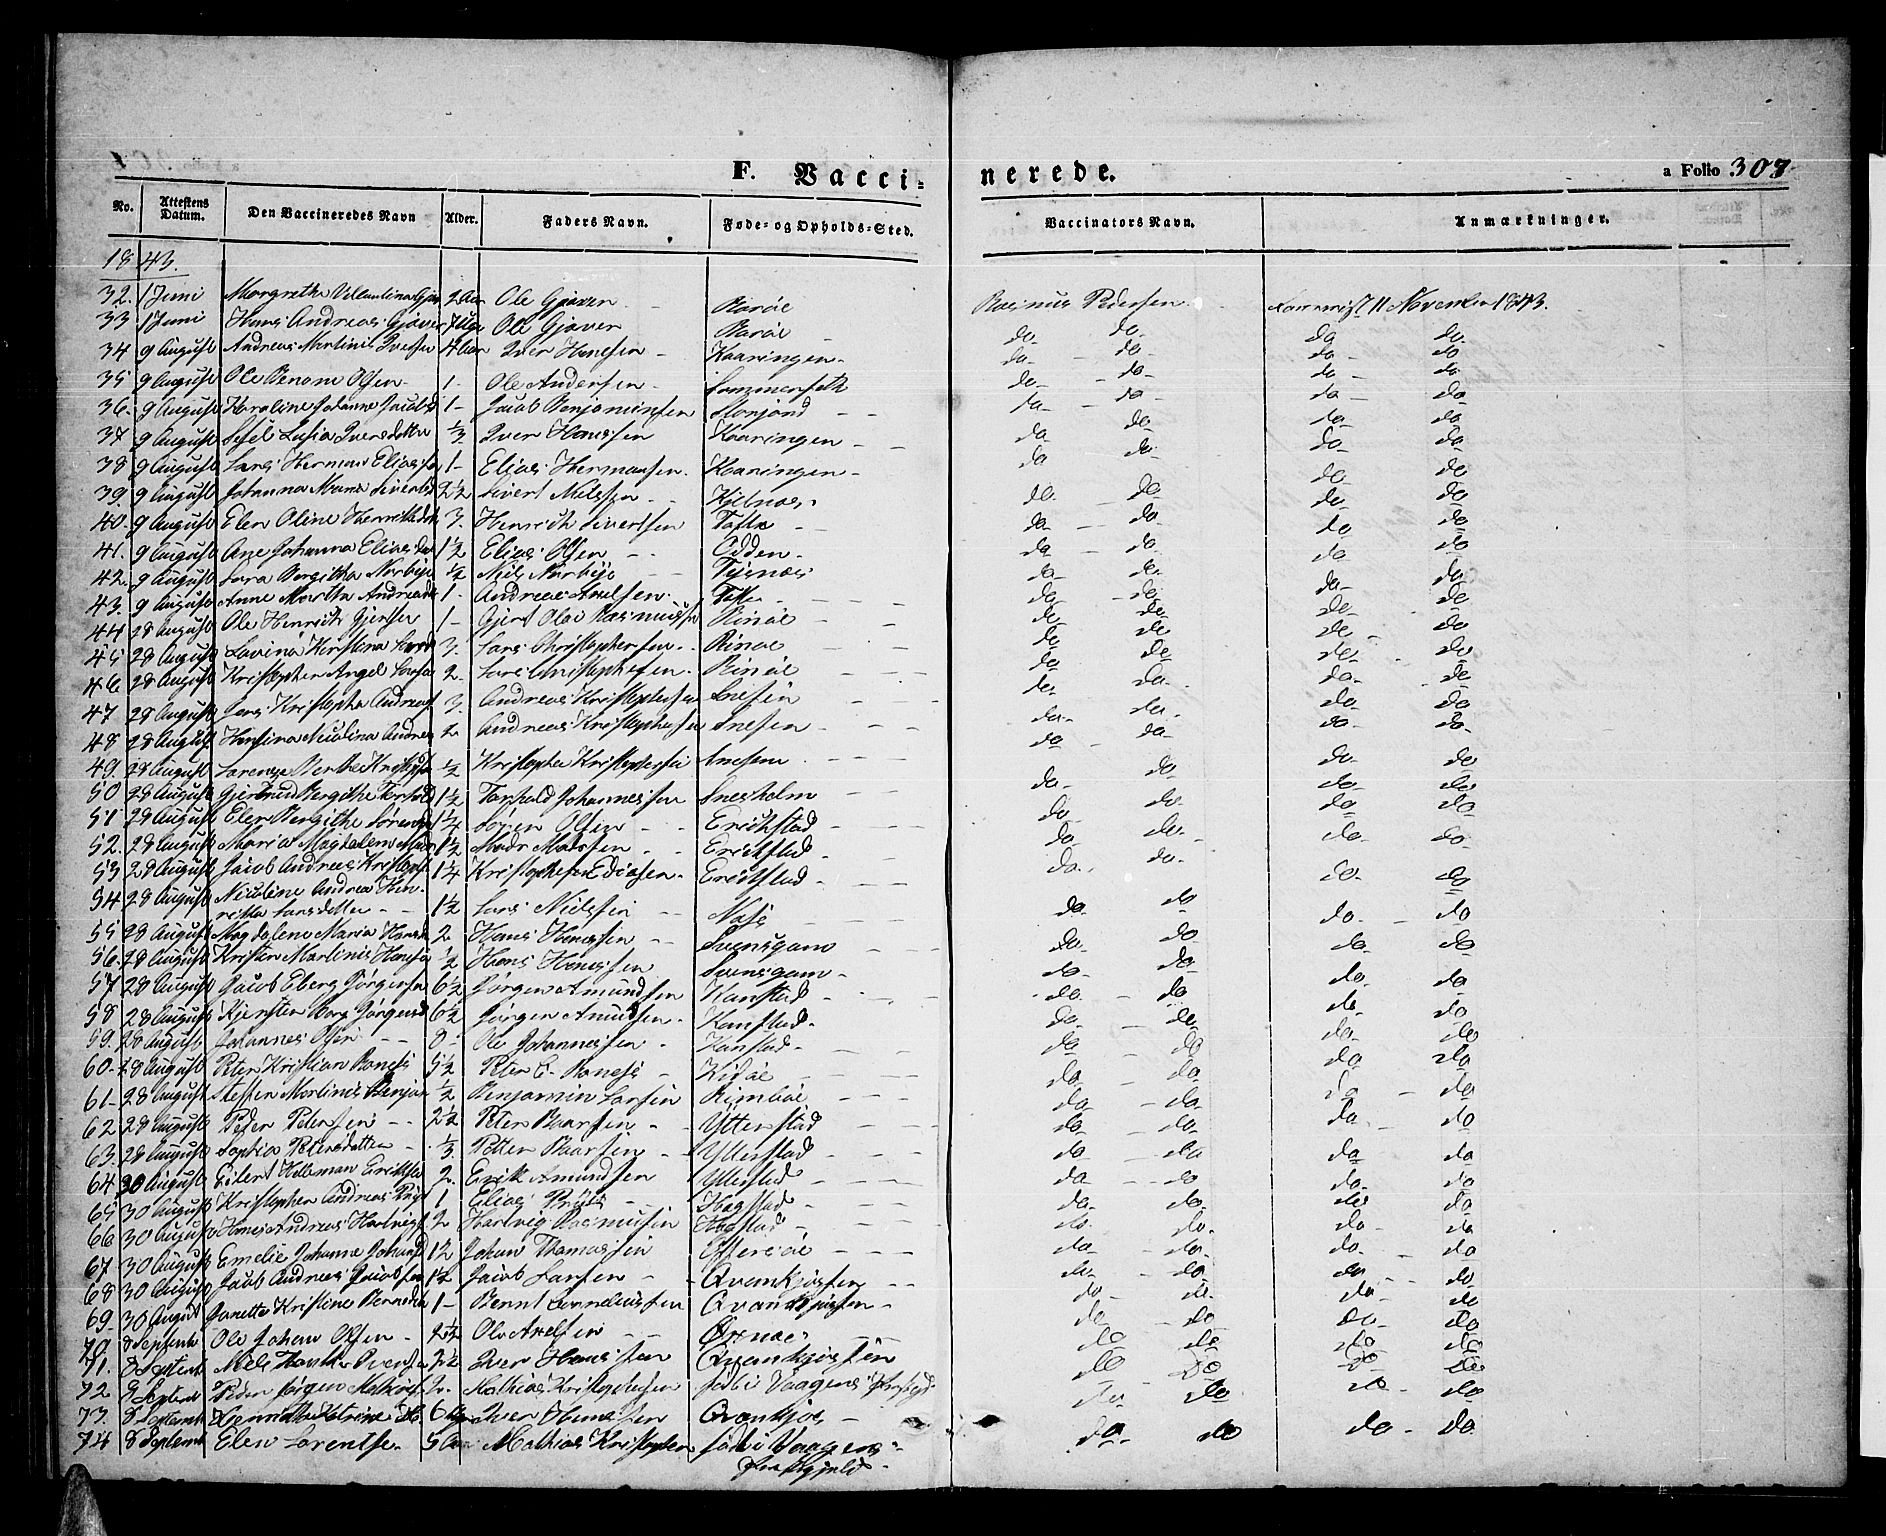 F. Vacci- nerede. a Folio 307
No. Attestens Datum. Den Vaccineredes Navn Alder. Faders Navn. Føde- og Opholds-Sted. Vaccinators Navn. Anmærkninger.
1843.
32. 1 Juni Margrethe 2 Aar Ole Gjøver Barøe Rasmus Pedersen 11 November 1843.
33 1 Juni Hans Andreas Gjøver 7 Uger Ole Gjøver Barøe do do do do
34 9 August Andreas Martinus Iversen 4 Aar Iver Hansen Kaaringen do do do do
35 9 August Ole Benoni Olsen 1 Ole Andersen Sommerseth do do do do
36. 9 August Karoline Johanne Jacobsd 1 Jacob Benjaminsen Storjord do do do do
37 9 August Sesel Lusia Iversdotter 1/3 Iver Hanssen Kaaringen do do do do
38 9 August Lars Herman Eliassen 1 Elias Hermansen Kaaringen do do do do
39. 9 August Johanna Maria Siverts 2 1/2 Sivert Nilssen Kjelnæs do do do do
40. 9 August Elen Oline Henriksd 3. Henrich Sivertsen do do do do
41. 9 August Ane Johanna Elias 1 1/2 Elias Olsen Odden do do do do
42. 9 August Sara Bergitha Norbye 1/2 Niels Norbye do do do do
43. 9 August Anne Martha Andreasd 1 Andreas Axelsen do do do do
44 28 August Ole Henrich Gjertsen 1 Gjert Olai Rasmussen Rinøe do do do do
45 28 August Lovina Kirstina Larsd 3. Lars Christophersen Rinøe do do do do
46 28 August Kristopher Angel Larsen 2. Lars Christophersen Rinøe do do do do
47 28 August Jens Kristopher Andreas 3 Andreas Kristophersen Snesen do do do do
48 28 August Hansina Nicolina Andreas 2 Andreas Kristophersen Snesen do do do do
49. 28 August Lorense Berthe Kristophersd 1/2 Kristopher Kristophersen Snesen do do do do
50 28 August Gjertrud Bergithe 1 1/2 Johannessen Snesholm do do do do
51 28 August Elen Bergithe Sørensd 1 1/4 Søren Olsen Erikstad do do do do
52. 28 August Maria Magdalena Mads 1 1/2 Mads Madssen Erikstad do do do do
53 28 August Jacob Andreas Kristophers 1 1/4 Kristopher Eliasen Erikstad do do do do
54 28 August Nicoline Andrea Hen-
ritta Larsdotter 1 1/2 Lars Nielssen do do do do
55 28 August Magdalene Maria Hansd 2 Hans Hanssen Svensgam do do do do
56. 28 August Kristen Martinus Hansen 1/2 Hans Hanssen Svensgam do do do do
57 28 August Jacob Eberg Jørgensen 6 1/2 Jørgen Amundsen Kanstad do do do do
58 28 August Kjersten Borg Jørgensd 6 1/2 Jørgen Amundsen Kanstad do do do do
59. 28 August Johannes Olsen 8 Ole Johannessen Kanstad do do do do
60. 28 August Peter Kristian 5 1/2 Peter E. do do do do
61 28 August Steffen Martinus Benjam 1/2 Benjamin Larsen Rinbøe do do do do
62 28 August Peder Petersen 2 1/2 Peter Baarsen Ytterstad do do do do
63. 28 August Sophia Petersdotter 1/3 Petter Baarsen Ytterstad do do do do
64 30 August Eilert Kileman Eriksen 2. Erik Amundsen Ytterstad do do do do
65 30 August Kristopher Andreas 1 Elias Hagstad do do do do
66 30 August Hans Andreas Hartvigs 2 Hartvig Rasmussen Hagstad do do do do
67 30 August Emelie Johanna Johansd 1 1/2 Johan Thomassen do do do do
68 30 August Jacob Andreas Jacobsen 1 1/2 Jacob Larsen Qvankjøsen do do do do
69. 30 August Janetta Kristine 1 Bernt Corneliussen Qvankjøsen do do do do
70. 8 Septemb Ole Johan Olsen 2 1/2 Ole Axelsen Øxnæs do do do do
71. 8 Septemb Niels Iversen 2 1/2 Iver Hanssen Qvankjøsen do do do do
72. 8 Septemb Peder Jørgen Mathias 2. Mathias Kristophersen født i Vaagens do do do do
73. 8 Septemb Katrine 6 Iver Hansen Qvankjøs do do do do
74 8 Septemb Elen Lorentse 5 Aar Mathias Kristophersen født i Vaagens do do do do
Præstegjeld